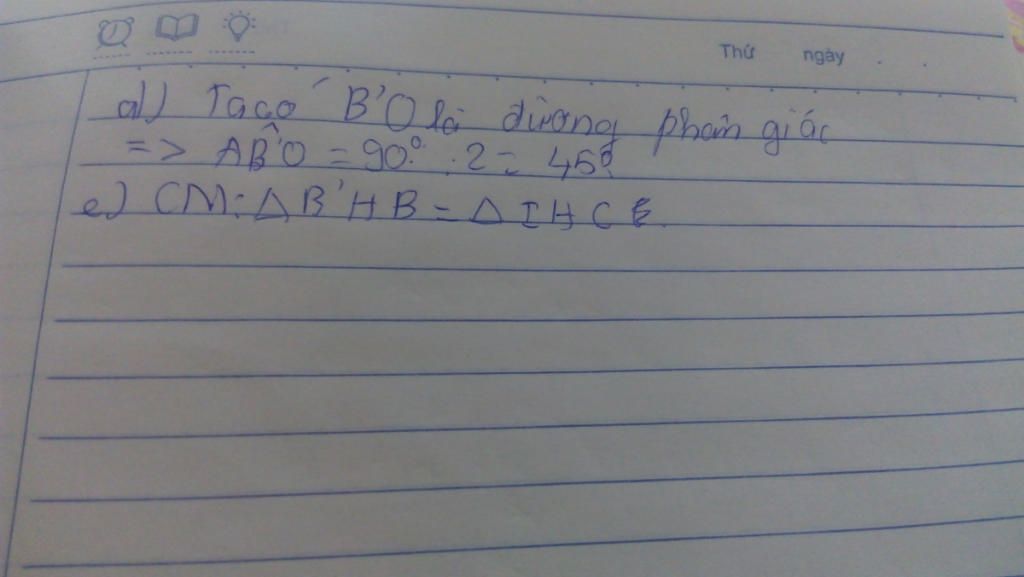 Thứ ngày . .
d) Ta có B'O là đường phân giác
=> AB̂'O = 90° . 2 = 45°
e) CM: Δ B'HB = Δ IHC